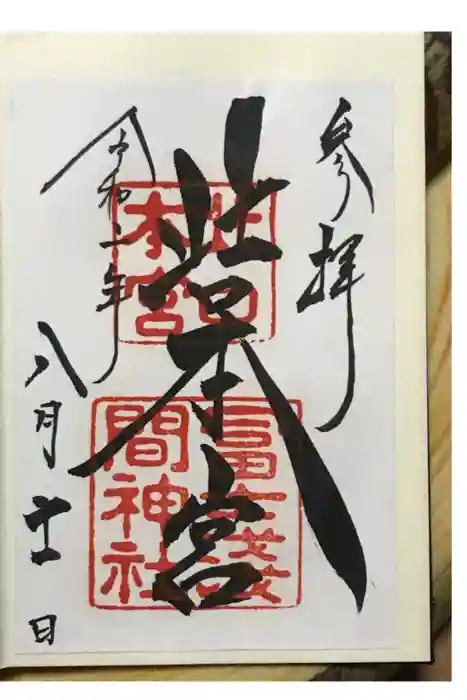 参拝
北口本宮
令和二年
八月十一日
北口
本宮
冨士淺
間神社